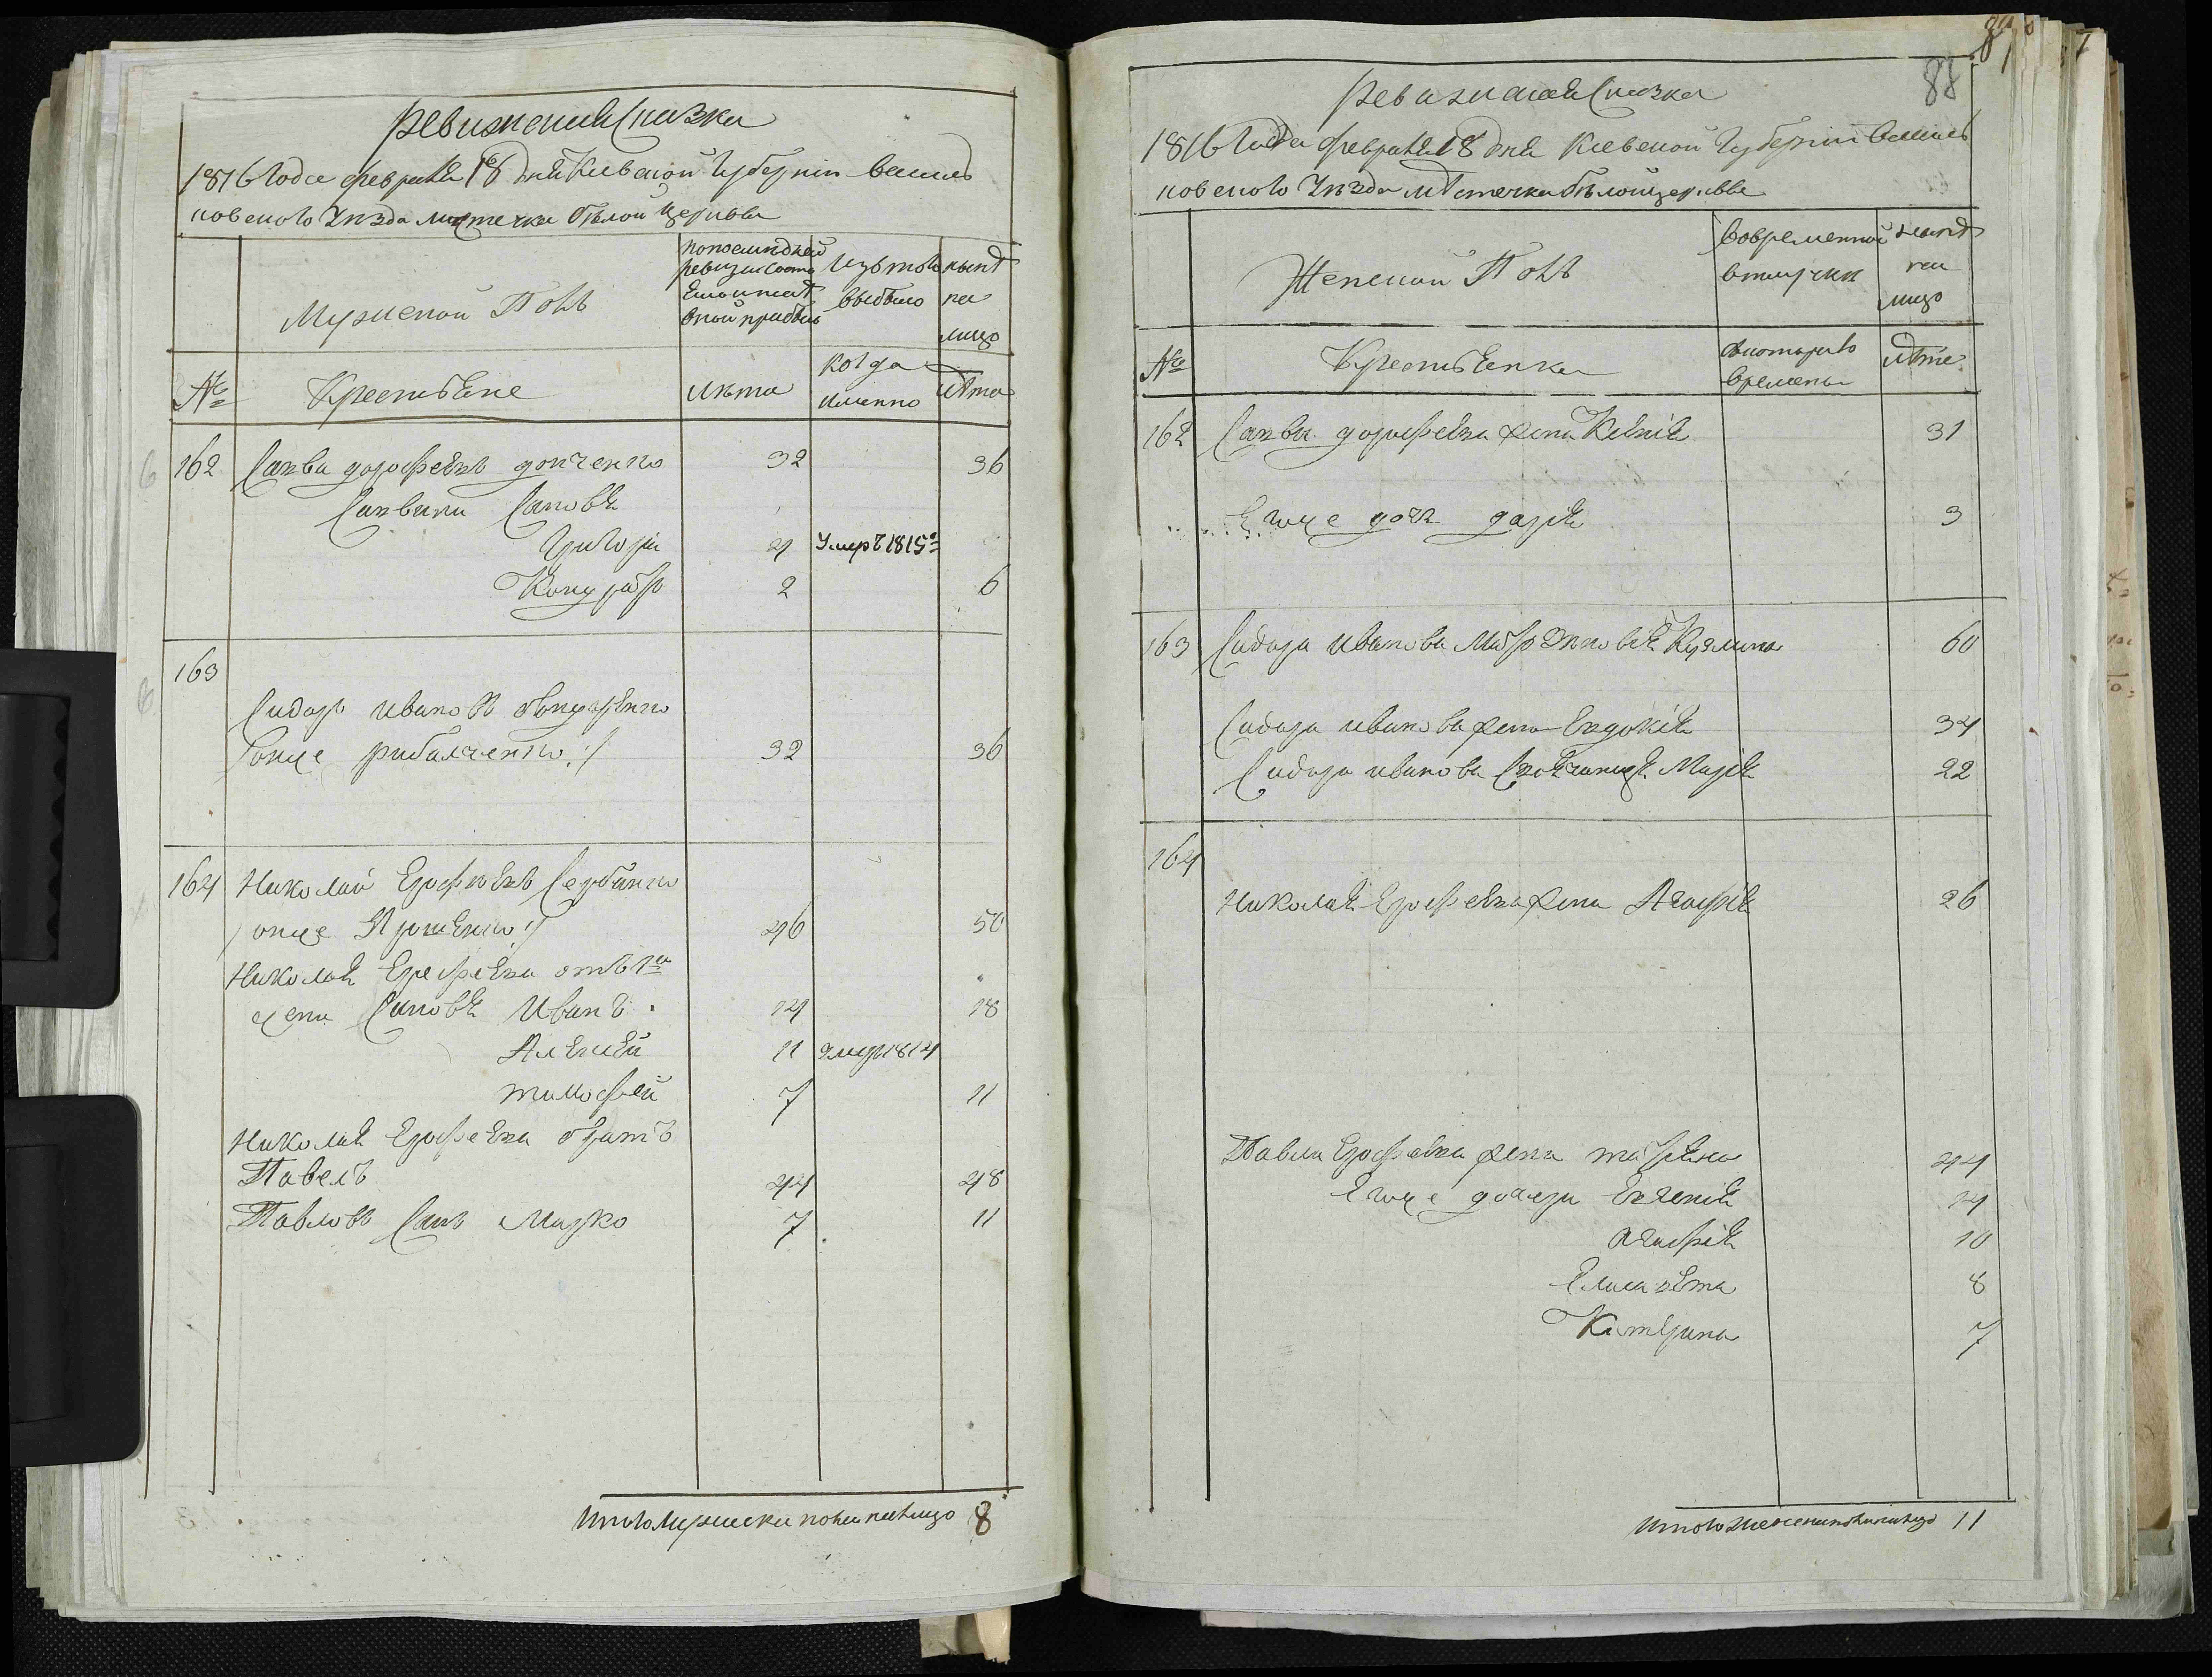 Ревизская Сказка
1816 Года февраля 18 дня Киевской Губернии Василь
ковского Уезда местечка Белой Церквы
Мужеской Полъ
по последней
ревизии состо
яло и после
оной прибыло
Изъ того
выбыло
ныне
на
лицо
№
Крестьяне
Лета
Когда
именно
Лета
162 Савва дорофеевъ донченко 32 36
Саввины Сыновья
Григорiй 4 Умеръ 1815г
Кондратъ 2 6
163
Сидоръ Ивановъ Бондаренко
/ онже рибалченко :/ 32 36
164 Николай Ерофеевъ Сербинко
/ онже Ярошенко :/ 46 50
Николая Ерофеева отъ 1й
жены Сыновья Иванъ 14 18
Алексей 11 умеръ 1814
тимофей 7 11
Николая Ерофеева братъ
Павелъ 44 48
Павловъ Сынъ Марко 7 11
Итого Мужеска пола на лицо 8
89
88
Ревизская Сказка
1816 Года Февраля 18 дня Киевской Губернии Василь
ковского Уезда местечка белой церквы
Женской Полъ
Во временной
отлучки
ныне
на
лицо
№
Крестьянки
с которого
времены
лета
162 Саввы дорофеева жена Ксенiя 31
Егоже дочь дарiя 3
163 Сидора Иванова Мать Ирина 60
Сидора Иванова жена Евдокiя 34
Сидора Иванова Марiя 22
164
Николая Ерофеева жена Агафiя 26
Павла Ерофеева жена татьяна 44
Егоже дочери Евгенiя 14
Агафiя 10
Елисавета 8
Катерина 7
Итого Женска пола на лицо 11